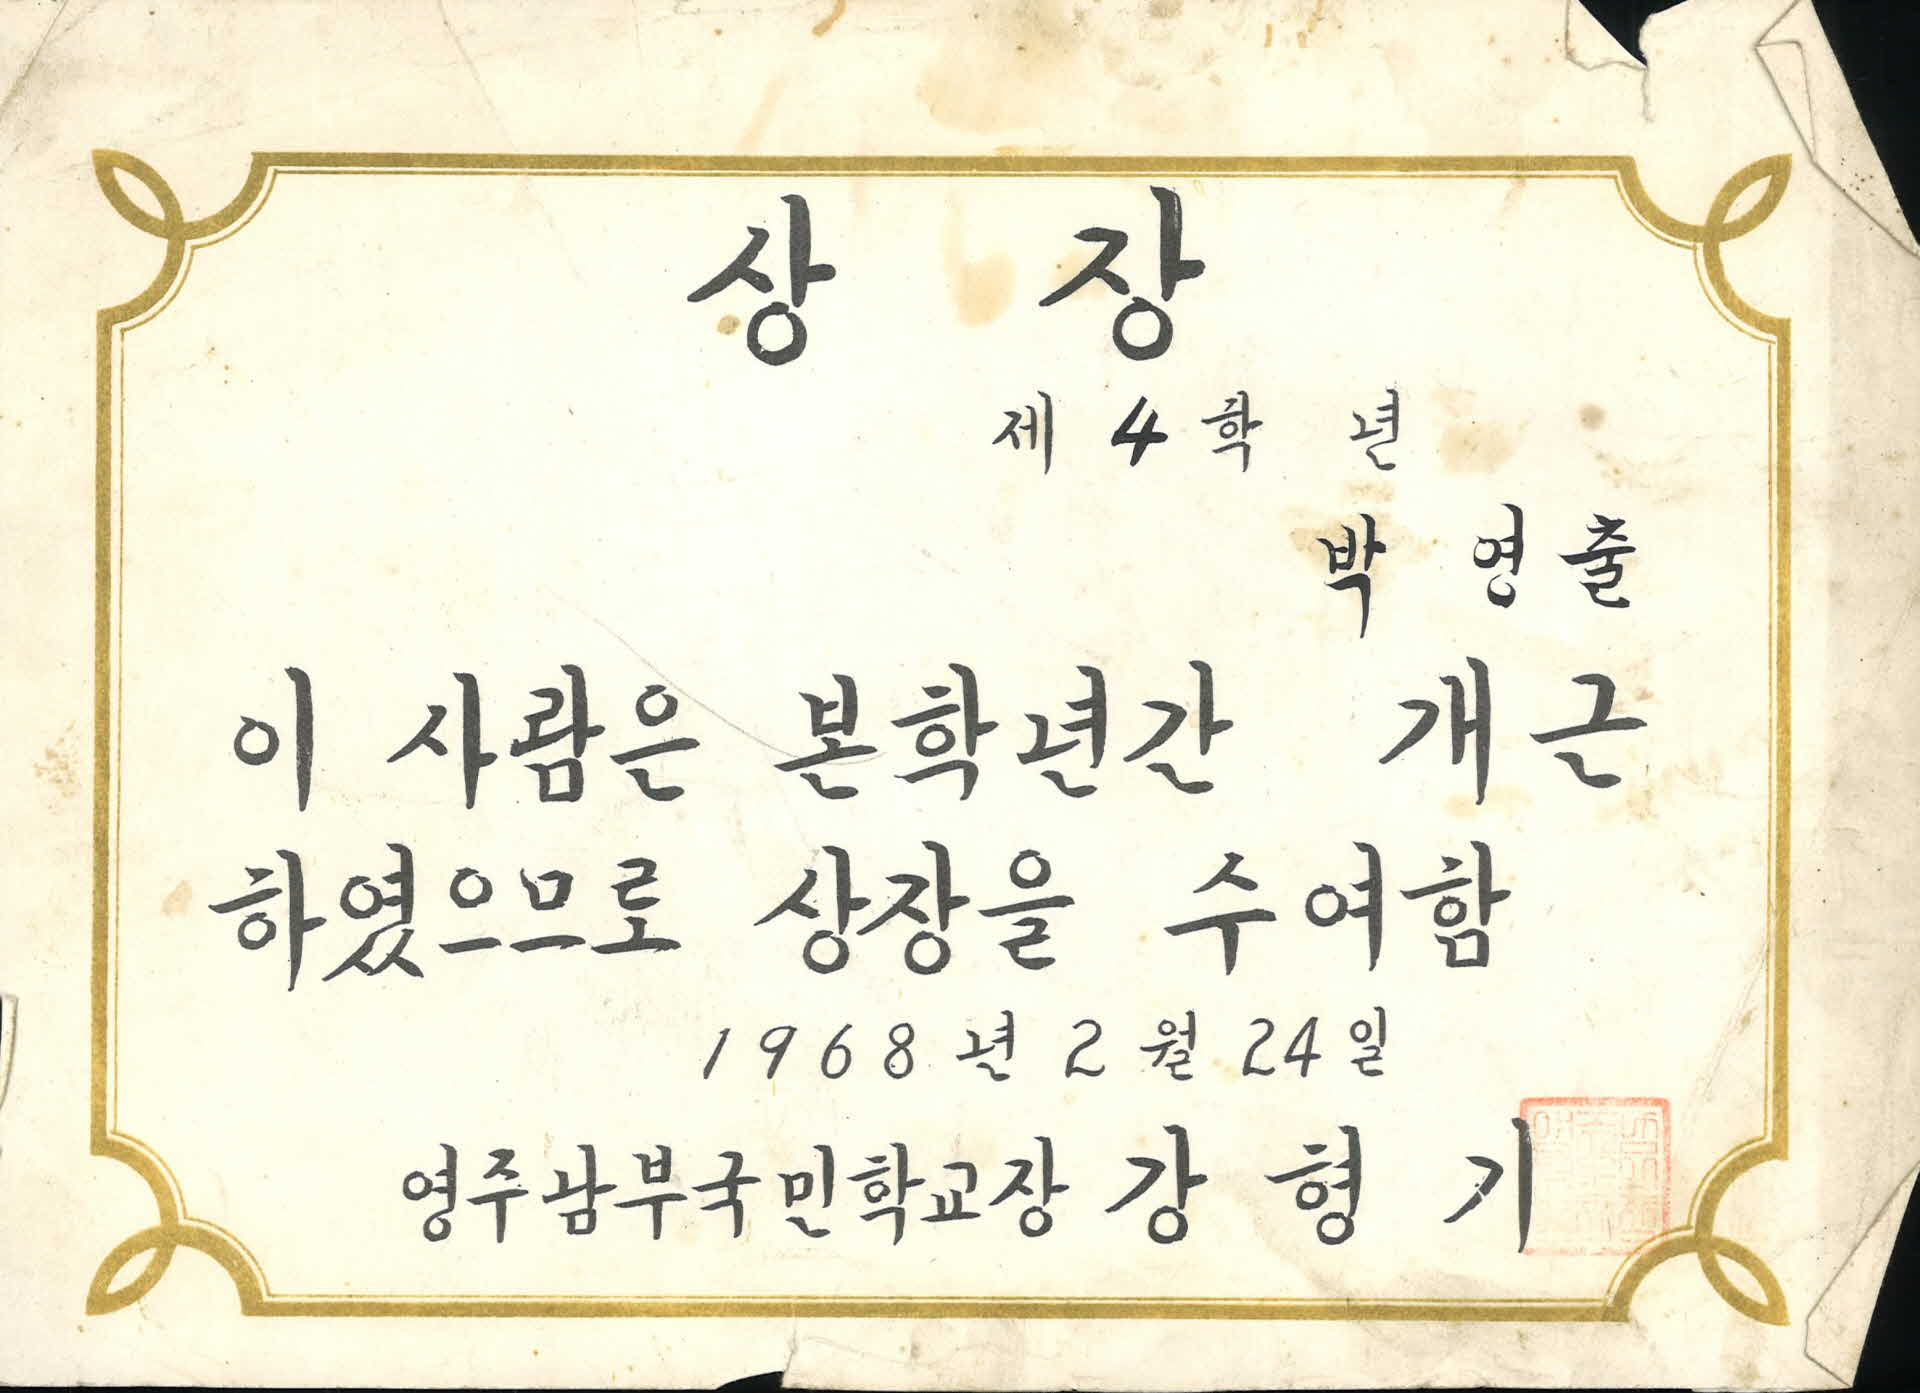 상 장
제 4 학 년
박 영출
이 사람은 본학년간 개근
하였으므로 상장을 수여함
1968년 2월 24일
영주남부국민학교장 강 형 기